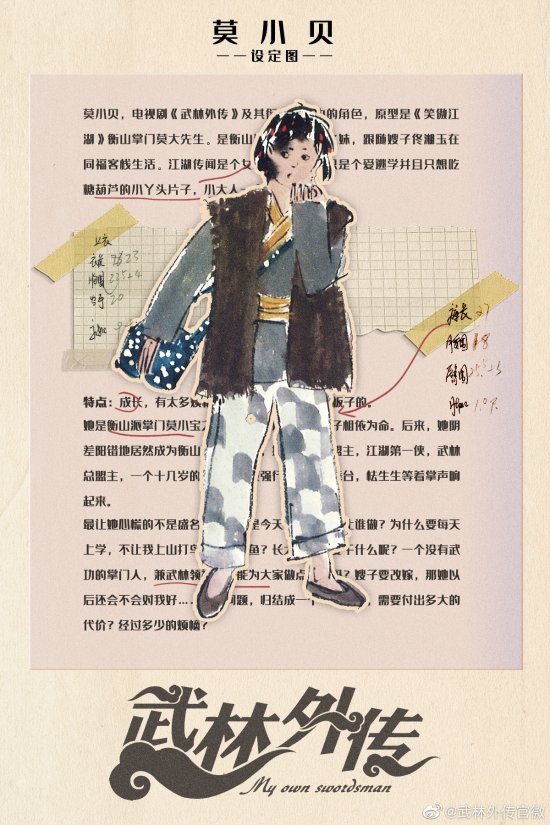 莫小贝
——设定图——
莫小贝，电视剧《武林外传》及其 中的角色，原型是《笑傲江
湖》衡山掌门莫大先生。是衡山 妹，跟随嫂子佟湘玉在
同福客栈生活。江湖传闻是个女 是个爱逃学并且只想吃
糖葫芦的小丫头片子，小大人
上衣
23
+4
20
裤长 27
腰围
臀围
特点：成长，有太多 板子的。
她是衡山派掌门莫小宝 子相依为命。后来，她阴
差阳错地居然成为衡山 盟主，江湖第一侠，武林
总盟主，一个十几岁的 强行 台，怯生生等着掌声响
起来。
最让她心慌的不是盛名 是今天 让谁做？为什么要每天
上学，不让我上山打鸟 鱼？长 什么呢？一个没有武
功的掌门人，兼武林领 能为大家做点 吗？嫂子要改嫁，那她以
后还会不会对我好… 问题，归结成一 需要付出多大的
代价？经过多少的烦恼？
武林外传
My own swordsman
@武林外传官微